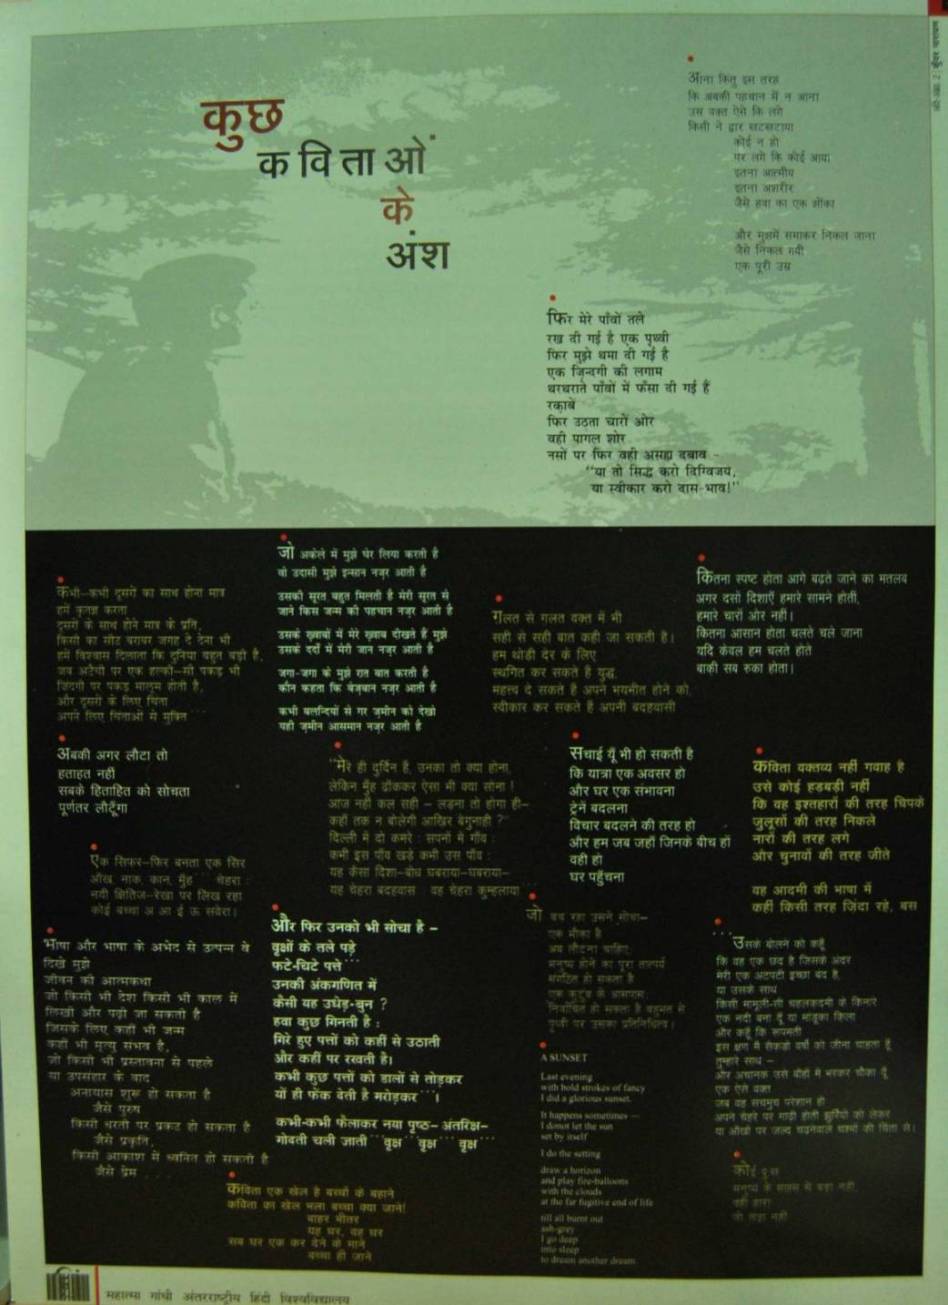 कुछ
कविताओं
के
अंश
आना किंतु इस तरह
कि अबकी पहचान में न आना
उस वक्त ऐसे कि लगे
किसी ने द्वार खटखटाया
कोई न हो
पर लगे कि कोई आया
इतना आत्मीय
इतना अशरीर
जैसे हवा का एक झोंका
और मुझमें समाकर निकल जाना
जैसे निकल गयी
एक पूरी उम्र
फिर मेरे पाँवों तले
रख दी गई है एक पृथ्वी
फिर मुझे थमा दी गई है
एक ज़िन्दगी की लगाम
थरथराते पाँवों में फँसा दी गई हैं
रकाबें
फिर उठता चारों ओर
वही पागल शोर
नसों पर फिर वही असह्य दबाव -
"या तो सिद्ध करो दिग्विजय,
या स्वीकार करो दास-भाव!"
कभी-कभी दूसरों का साथ होना मात्र
हमें कृतज्ञ करता
दूसरों के साथ होने मात्र के प्रति,
किसी का सीट बराबर जगह दे देना भी
हमें विश्वास दिलाता कि दुनिया बहुत बड़ी है,
जब अटैची पर एक हल्की-सी पकड़ भी
ज़िंदगी पर पकड़ मालूम होती है,
और दूसरों के लिए चिंता
अपने लिए चिंताओं से मुक्ति
जो अकेले में मुझे घेर लिया करती है
वो उदासी मुझे इन्सान नज़र आती है
उसकी सूरत बहुत मिलती है मेरी सूरत से
जाने किस जन्म की पहचान नज़र आती है
उसके ख़्वाबों में मेरे ख़्वाब दीखते हैं मुझे
उसके दर्दों में मेरी जान नज़र आती है
जगा-जगा के मुझे रात बात करती है
कौन कहता कि बेज़बान नज़र आती है
कभी बलन्दियों से गर ज़मीन को देखो
यही ज़मीन आसमान नज़र आती है
ग़लत से ग़लत वक्त में भी
सही से सही बात कही जा सकती है।
हम थोड़ी देर के लिए
स्थगित कर सकते हैं युद्ध,
महत्त्व दे सकते हैं अपने भयभीत होने को,
स्वीकार कर सकते हैं अपनी बदहवासी
कितना स्पष्ट होता आगे बढ़ते जाने का मतलब
अगर दसों दिशाएँ हमारे सामने होतीं,
हमारे चारों ओर नहीं।
कितना आसान होता चलते चले जाना
यदि केवल हम चलते होते
बाक़ी सब रुका होता।
अबकी अगर लौटा तो
हताहत नहीं
सबके हिताहित को सोचता
पूर्णतर लौटूँगा
"मेरे ही दुर्दिन हैं, उनका तो क्या होना,
लेकिन मुँह ढँककर ऐसा भी क्या सोना !
आज नहीं कल सही – लड़ना तो होगा ही–
कहाँ तक न बोलेगी आख़िर बेगुनाही ?"
दिल्ली में दो कमरे : सपनों में गाँव :
कभी इस पाँव खड़े कभी उस पाँव :
यह कैसा दिशा-बोध घबराया-घबराया–
यह चेहरा बदहवास : वह चेहरा कुम्हलाया
सचाई यूँ भी हो सकती है
कि यात्रा एक अवसर हो
और घर एक संभावना
ट्रेनें बदलना
विचार बदलने की तरह हो
और हम जब जहाँ जिनके बीच हों
वही हो
घर पहुँचना
कविता वक्तव्य नहीं गवाह है
उसे कोई हड़बड़ी नहीं
कि वह इश्तहारों की तरह चिपके
जुलूसों की तरह निकले
नारों की तरह लगे
और चुनावों की तरह जीते
वह आदमी की भाषा में
कहीं किसी तरह ज़िंदा रहे, बस
एक सिफर-फिर बनता एक सिर
आँख नाक कान मुँह चेहरा :
नयी क्षितिज-रेखा पर लिख रहा
कोई बच्चा अ आ ई ऊ सवेरा।
भाषा और भाषा के अभेद से उत्पन्न वे
दिखे मुझे
जीवन की आत्मकथा
जो किसी भी देश किसी भी काल में
लिखी और पढ़ी जा सकती है
जिसके लिए कहीं भी जन्म
कहीं भी मृत्यु संभव है,
जो किसी भी प्रस्तावना से पहले
या उपसंहार के बाद
अनायास शुरू हो सकता है
जैसे पुरुष
किसी धरती पर प्रकट हो सकता है
जैसे प्रकृति,
किसी आकाश में ध्वनित हो सकती है
जैसे प्रेम
और फिर उनको भी सोचा है –
वृक्षों के तले पड़े
फटे-चिटे पत्ते
उनकी अंकगणित में
कैसी यह उधेड़-बुन ?
हवा कुछ गिनती है :
गिरे हुए पत्तों को कहीं से उठाती
और कहीं पर रखती है।
कभी कुछ पत्तों को डालों से तोड़कर
यों ही फेंक देती है मरोड़कर ।
कभी-कभी फैलाकर नया पृष्ठ– अंतरिक्ष–
गोदती चली जाती वृक्ष वृक्ष वृक्ष
जो बच रहा उसने सोचा–
एक मौका है
अब लौटना चाहिए
मनुष्य होने का पूरा तात्पर्य
संगठित हो सकता है
एक कुटुम्ब के आसपास
निर्वाचित हो सकता है बहुमत से
पृथ्वी पर उसका प्रतिनिधित्व।
उसके बोलने को कहूँ
कि वह एक छंद है जिसके अंदर
मेरी एक अटपटी इच्छा बंद है,
या उसके साथ
किसी मामूली-सी चहलक़दमी के किनारे
एक नदी बना दूँ या मांडूका किला
और कहूँ कि रूपमती
इस क्षण में सैकड़ों वर्षों को जीना चाहता हूँ
तुम्हारे साथ –
और अचानक उसे बाँहों में भरकर चौंका दूँ
एक ऐसे वक्त
जब वह सचमुच परेशान हो
अपने चेहरे पर गाढ़ी होती झुर्रियों को लेकर
या आँखों पर जल्द चढ़नेवाले चश्मों की चिंता से।
A SUNSET
Last evening
with bold strokes of fancy
I did a glorious sunset.
It happens sometimes —
I donot let the sun
set by itself
I do the setting
draw a horizon
and play fire-balloons
with the clouds
at the far fugitive end of life
till all burnt out
ash-grey
I go deep
into sleep
to dream another dream.
कोई दुख
मनुष्य के साहस से बड़ा नहीं,
वही हारा
जो लड़ा नहीं
कविता एक खेल है बच्चों के बहाने
कविता का खेल भला बच्चा क्या जाने!
बाहर भीतर
यह घर, वह घर
सब घर एक कर देने के माने
बच्चा ही जाने
महात्मा गांधी अंतरराष्ट्रीय हिंदी विश्वविद्यालय